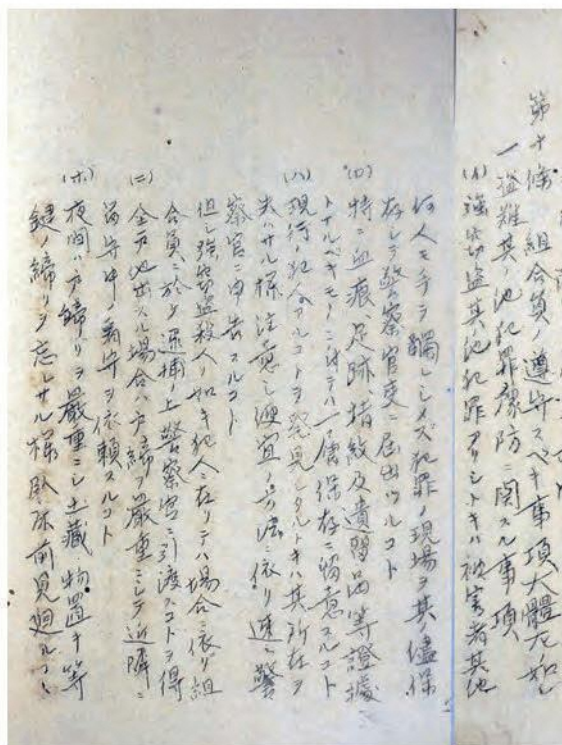 第十條 組合員ノ遵守スベキ事項大體左ノ如シ
一 盜難其ノ他犯罪豫防ニ關スル事項
(イ)強窃盜其他犯罪アリシトキハ被害者其他
何人モ手ヲ觸レシメズ犯罪ノ現場ヲ其儘保
存シテ警察官吏ニ屆出ヅルコト
(ロ)特ニ血痕、足跡、指紋及遺留品等證據
トナルベキモノニ付テハ一層保存ニ留意スルコト
(ハ)現行犯人アルコトヲ發見シタルトキハ其所在ヲ
失ハサル樣注意シ便宜ノ方法ニ依リ速ニ警
察官ニ申告スルコト
但シ強窃盜殺人ノ如キ犯人ニ在リテハ場合ニ依リ組
合員ニ於テ逮捕ノ上警察官ニ引渡スコトヲ得
(ニ)全戸他出スル場合ハ戸締ヲ嚴重ニシテ近隣ニ
留守中ノ看守ヲ依賴スルコト
(ホ)夜間ハ戸締リヲ嚴重ニシ土藏物置キ等
鍵ノ締リヲ忘レサル樣臥床前見廻ルコト